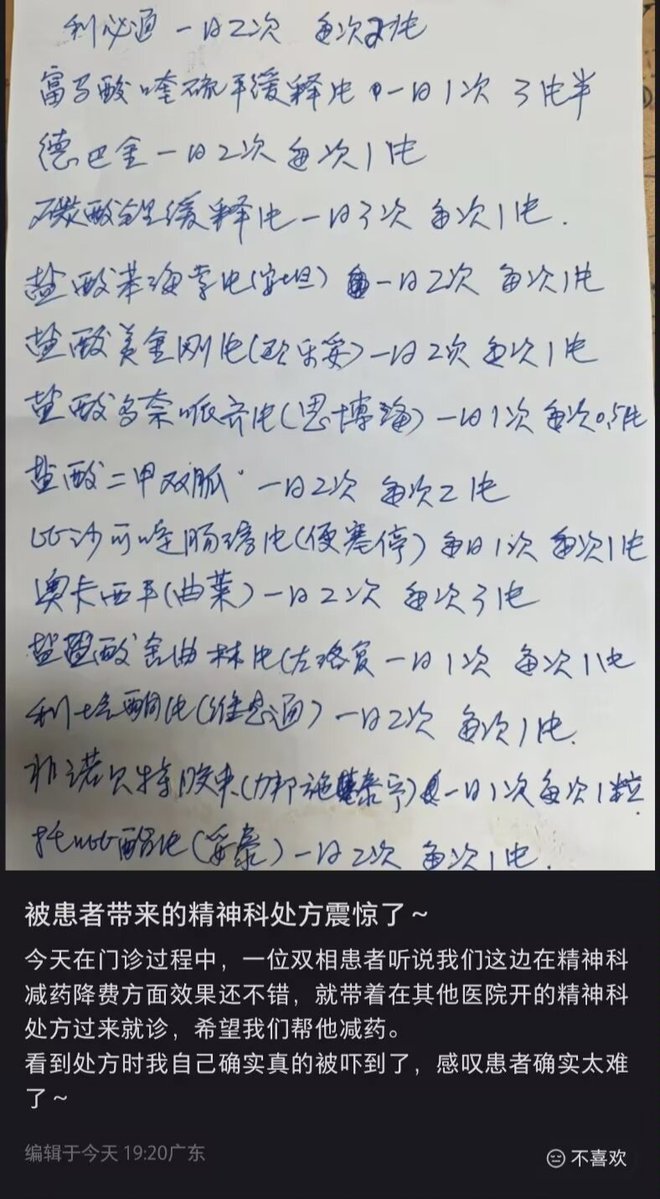 利必通 一日2次 每次2片
富马酸喹硫平缓释片 一日1次 3片半
德巴金一日2次 每次1片
碳酸锂缓释片一日3次 每次1片.
盐酸苯海索片(安坦) 一日2次 每次1片
盐酸美金刚片(欧乐妥)一日2次 每次1片
盐酸多奈哌齐片(思博海)一日1次 每次0.5片
盐酸二甲双胍 一日2次 每次2片
比沙可啶肠溶片(便塞停) 每日1次 每次1片
奥卡西平(曲莱)一日2次 每次3片
盐酸舍曲林片(左洛复 一日1次 每次1片
利培酮片(维思通)一日2次 每次1片.
非诺贝特胶囊(力邦施泰宁)一日1次每次1粒
托吡酯片(妥泰)一日2次 每次1片.
被患者带来的精神科处方震惊了～
今天在门诊过程中，一位双相患者听说我们这边在精神科
减药降费方面效果还不错，就带着在其他医院开的精神科
处方过来就诊，希望我们帮他减药。
看到处方时我自己确实真的被吓到了，感叹患者确实太难
了～
编辑于今天 19:20广东
不喜欢